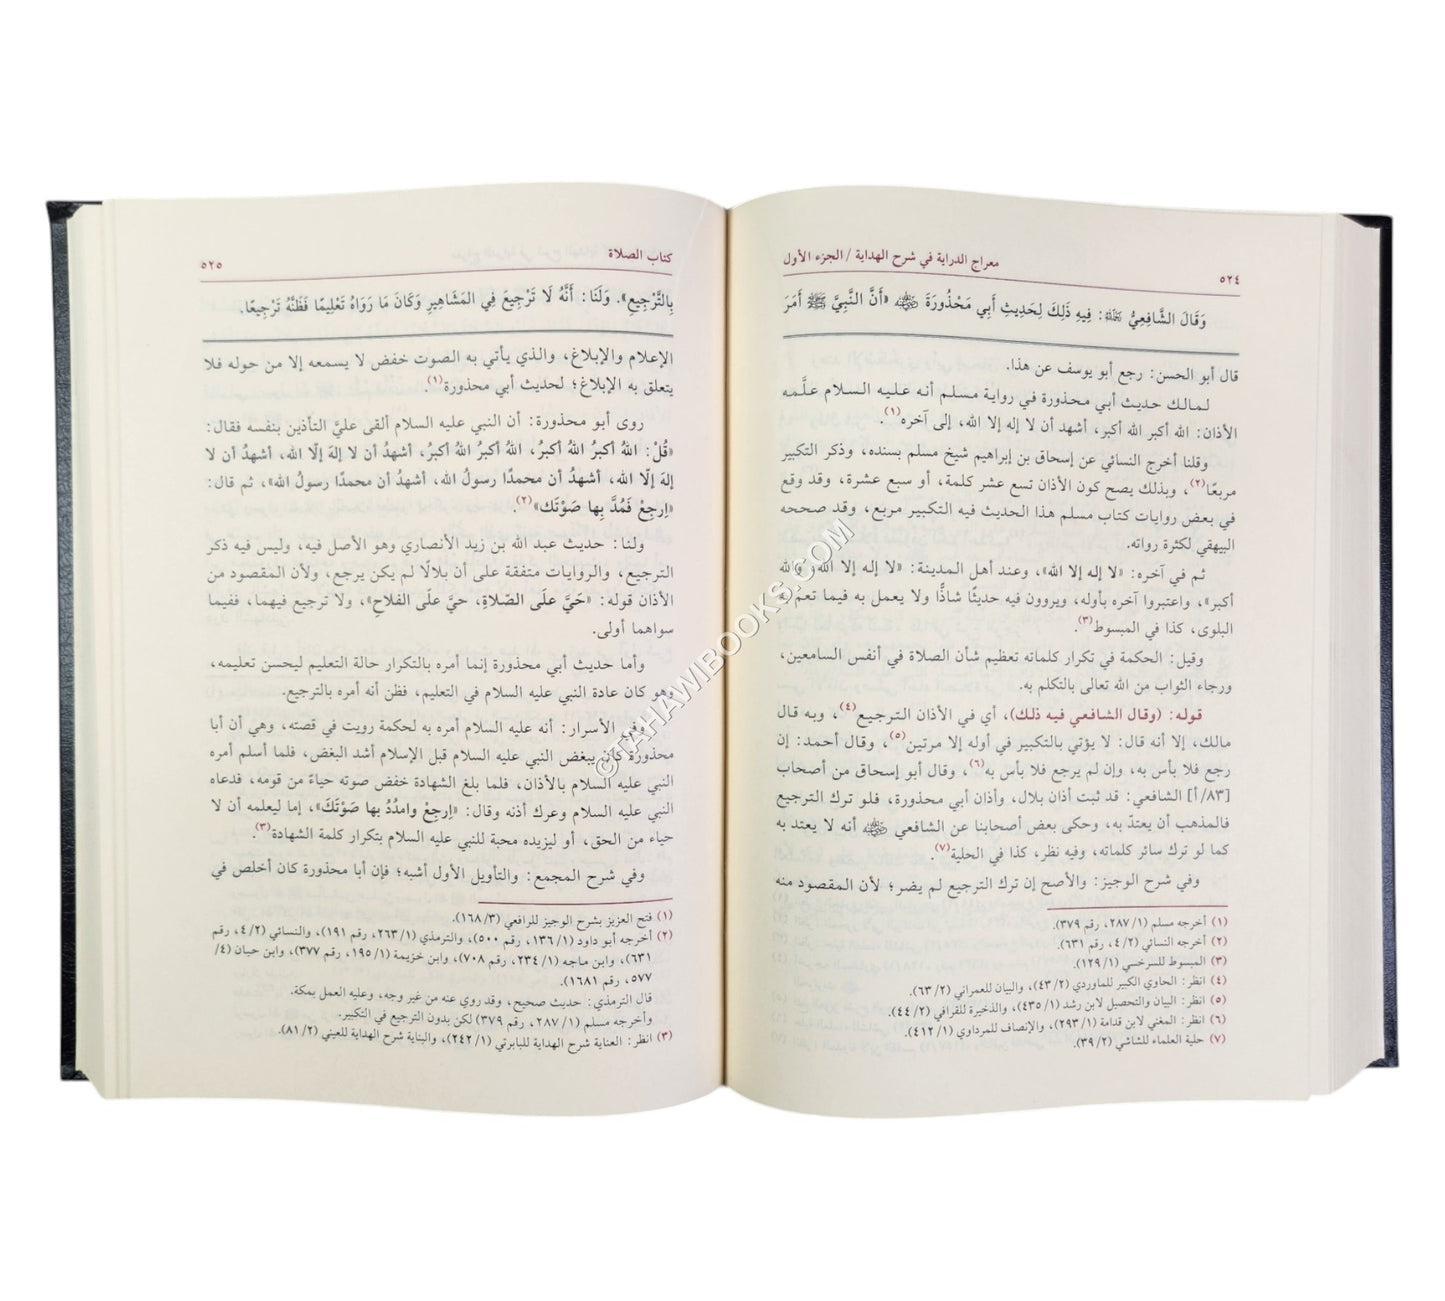 ٥٢٤
معراج الدراية في شرح الهداية / الجزء الأول
وَقَالَ الشَّافِعِيُّ: فِيهِ ذَلِكَ لِحَدِيثِ أَبِي مَحْذُورَةَ «أَنَّ النَّبِيَّ ﷺ أَمَرَ
قال أبو الحسن: رجع أبو يوسف عن هذا.
لمالك حديث أبي محذورة في رواية مسلم أنه عليه السلام علَّمه
الأذان: الله أكبر الله أكبر، أشهد أن لا إله إلا الله، إلى آخره(١).
وقلنا أخرج النسائي عن إسحاق بن إبراهيم شيخ مسلم بسنده، وذكر التكبير
مربعًا(٢)، وبذلك يصح كون الأذان تسع عشر كلمة، أو سبع عشرة، وقد وقع
في بعض روايات كتاب مسلم هذا الحديث فيه التكبير مربع، وقد صححه
البيهقي لكثرة رواته.
ثم في آخره: «لا إله إلا الله»، وعند أهل المدينة: «لا إله إلا الله، والله
أكبر»، واعتبروا آخره بأوله، ويروون فيه حديثًا شاذًّا ولا يعمل به فيما تعم به
البلوى، كذا في المبسوط(٣).
وقيل: الحكمة في تكرار كلماته تعظيم شأن الصلاة في أنفس السامعين،
ورجاء الثواب من الله تعالى بالتكلم به.
قوله: (وقال الشافعي فيه ذلك)، أي في الأذان الترجيع(٤)، وبه قال
مالك، إلا أنه قال: لا يؤتي بالتكبير في أوله إلا مرتين(٥)، وقال أحمد: إن
رجع فلا بأس به، وإن لم يرجع فلا بأس به(٦)، وقال أبو إسحاق من أصحاب
[٨٣/أ] الشافعي: قد ثبت أذان بلال، وأذان أبي محذورة، فلو ترك الترجيع
فالمذهب أن يعتدّ به، وحكى بعض أصحابنا عن الشافعي أنه لا يعتد به
كما لو ترك سائر كلماته، وفيه نظر، كذا في الحلية(٧).
وفي شرح الوجيز: والأصح إن ترك الترجيع لم يضر؛ لأن المقصود منه
(١) أخرجه مسلم (١/ ٢٨٧، رقم ٣٧٩).
(٢) أخرجه النسائي (٢/ ٤، رقم ٦٣١).
(٣) المبسوط للسرخسي (١/ ١٢٩).
(٤) انظر: الحاوي الكبير للماوردي (٢/ ٤٣)، والبيان للعمراني (٢/ ٦٣).
(٥) انظر: البيان والتحصيل لابن رشد (١/ ٤٣٥)، والذخيرة للقرافي (٢/ ٤٤).
(٦) انظر: المغني لابن قدامة (١/ ٢٩٣)، والإنصاف للمرداوي (١/ ٤١٢).
(٧) حلية العلماء للشاشي (٢/ ٣٩).
كتاب الصلاة
٥٢٥
بِالتَّرْجِيعِ». وَلَنَا: أَنَّهُ لَا تَرْجِيعَ فِي المَشَاهِيرِ وَكَانَ مَا رَوَاهُ تَعْلِيمًا فَظَنَّهُ تَرْجِيعًا.
الإعلام والإبلاغ، والذي يأتي به الصوت خفض لا يسمعه إلا من حوله فلا
يتعلق به الإبلاغ؛ لحديث أبي محذورة(١).
روى أبو محذورة: أن النبي عليه السلام ألقى عليَّ التأذين بنفسه فقال:
«قُلْ: اللهُ أكبرُ اللهُ أكبرُ، اللهُ أكبرُ اللهُ أكبرُ، أشهدُ أن لا إلهَ إلّا الله، أشهدُ أن لا
إلهَ إلّا الله، أشهدُ أن محمدًا رسولُ الله، أشهدُ أن محمدًا رسولُ الله»، ثم قال:
«اِرجِعْ فَمُدَّ بِها صَوْتَك»(٢).
ولنا: حديث عبد الله بن زيد الأنصاري وهو الأصل فيه، وليس فيه ذكر
الترجيع، والروايات متفقة على أن بلالًا لم يكن يرجع، ولأن المقصود من
الأذان قوله: «حَيَّ علَى الصّلاةِ، حيَّ علَى الفلاحِ»، ولا ترجيع فيهما، ففيما
سواهما أولى.
وأما حديث أبي محذورة إنما أمره بالتكرار حالة التعليم ليحسن تعليمه،
وهو كان عادة النبي عليه السلام في التعليم، فظن أنه أمره بالترجيع.
وفي الأسرار: أنه عليه السلام أمره به لحكمة رويت في قصته، وهي أن أبا
محذورة كان يبغض النبي عليه السلام قبل الإسلام أشد البغض، فلما أسلم أمره
النبي عليه السلام بالأذان، فلما بلغ الشهادة خفض صوته حياءً من قومه، فدعاه
النبي عليه السلام وعرك أذنه وقال: «اِرجِعْ وامدُدْ بها صَوْتَكَ»، إما ليعلمه أن لا
حياء من الحق، أو ليزيده محبة للنبي عليه السلام بتكرار كلمة الشهادة(٣).
وفي شرح المجمع: والتأويل الأول أشبه؛ فإن أبا محذورة كان أخلص في
(١) فتح العزيز بشرح الوجيز للرافعي (٣/ ١٦٨).
(٢) أخرجه أبو داود (١/ ١٣٦، رقم ٥٠٠)، والترمذي (١/ ٢٦٣، رقم ١٩١)، والنسائي (٢/ ٤، رقم
٦٣١)، وابن ماجه (١/ ٢٣٤، رقم ٧٠٨)، وابن خزيمة (١/ ١٩٥، رقم ٣٧٧)، وابن حبان (٤/
٥٧٧، رقم ١٦٨١).
قال الترمذي: حديث صحيح، وقد روي عنه من غير وجه، وعليه العمل بمكة.
وأخرجه مسلم (١/ ٢٨٧، رقم ٣٧٩) لكن بدون الترجيع في التكبير.
(٣) انظر: العناية شرح الهداية للبابرتي (١/ ٢٤٢)، والبناية شرح الهداية للعيني (٢/ ٨١).
©TAHAWIBOOKS.COM